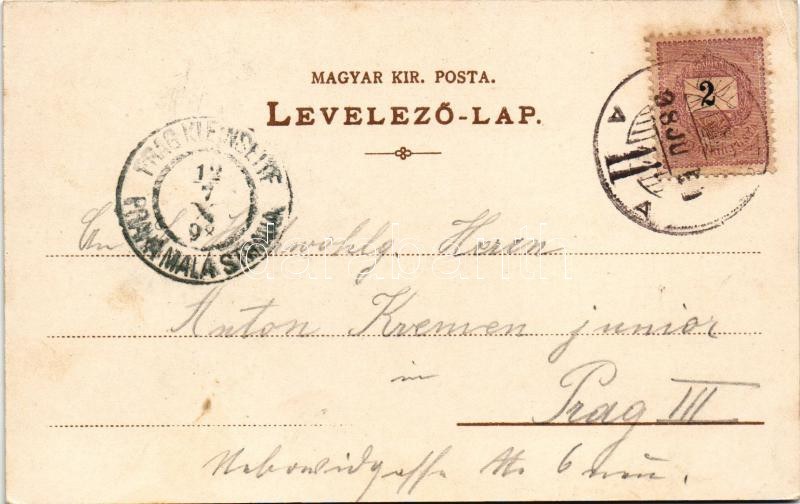 MAGYAR KIR. POSTA.
LEVELEZŐ-LAP.
2
98 JUL
A
A
PRAG KLEINSEITE
12
7
X
98
PRAHA MALÁ STRANA
An S. Hochwohlg. Herrn
Anton Kremen junior
in
Prag III
No 6 neu.
darabanth